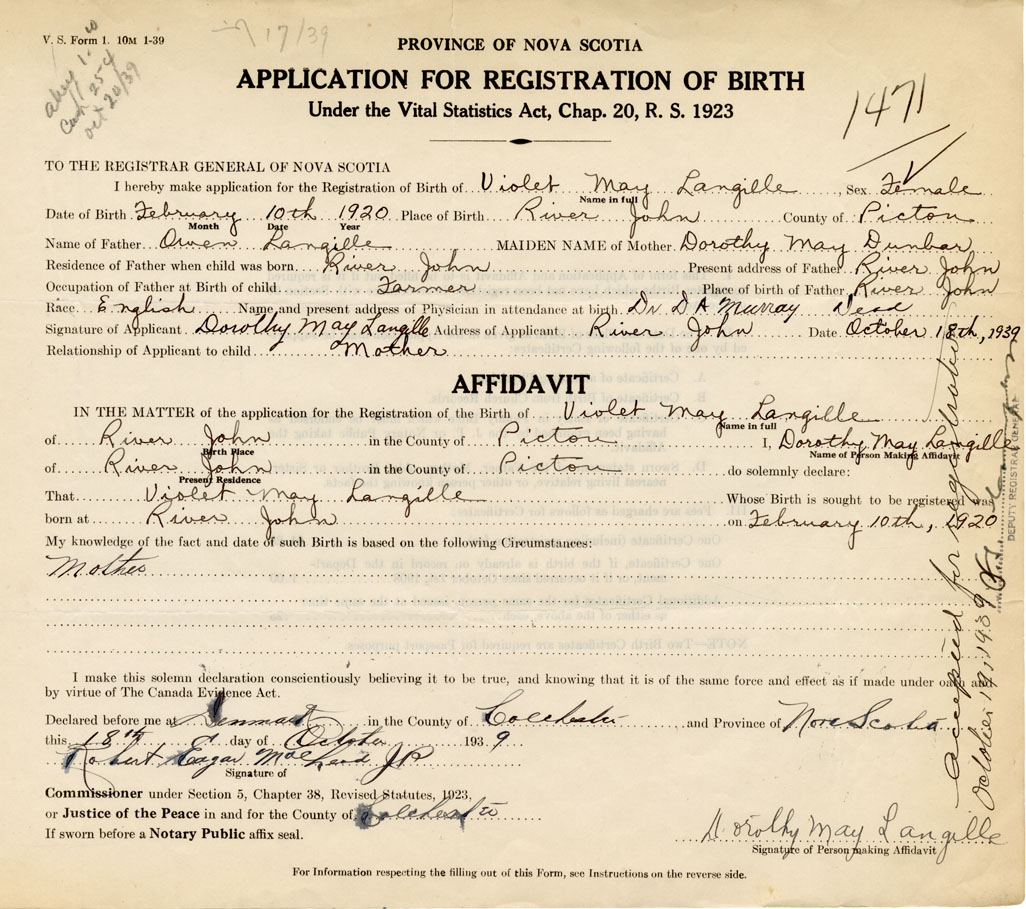 V. S. Form 1. 10M 1-39
17/39
Oct 20/39
PROVINCE OF NOVA SCOTIA
APPLICATION FOR REGISTRATION OF BIRTH
Under the Vital Statistics Act, Chap. 20, R. S. 1923
1471
TO THE REGISTRAR GENERAL OF NOVA SCOTIA
I hereby make application for the Registration of Birth of Violet May Langille, Sex Female
Name in full
Date of Birth February 10th 1920 Place of Birth River John County of Picton
Month Date Year
Name of Father Owen Langille MAIDEN NAME of Mother Dorothy May Dunbar
Residence of Father when child was born River John Present address of Father River John
Occupation of Father at Birth of child Farmer Place of birth of Father River John
Race English Name and present address of Physician in attendance at birth Dr D A Murray Dead
Signature of Applicant Dorothy May Langille Address of Applicant River John Date October 18th, 1939
Relationship of Applicant to child Mother
AFFIDAVIT
IN THE MATTER of the application for the Registration of the Birth of Violet May Langille
Name in full
of River John in the County of Picton I, Dorothy May Langille
Birth Place Name of Person Making Affidavit
of River John in the County of Picton do solemnly declare:
Present Residence
That Violet May Langille Whose Birth is sought to be registered was
born at River John on February 10th, 1920
My knowledge of the fact and date of such Birth is based on the following Circumstances:
Mother
I make this solemn declaration conscientiously believing it to be true, and knowing that it is of the same force and effect as if made under oath and
by virtue of The Canada Evidence Act.
Declared before me at in the County of Colchester and Province of Nova Scotia
this 18th day of October 1939
Robert Edgar MacLeod JP
Signature of
Commissioner under Section 5, Chapter 38, Revised Statutes, 1923,
or Justice of the Peace in and for the County of Colchester
If sworn before a Notary Public affix seal.
Dorothy May Langille
Signature of Person making Affidavit
For Information respecting the filling out of this Form, see Instructions on the reverse side.
Accepted for registration
October 19, 1939
DEPUTY REGISTRAR GENERAL